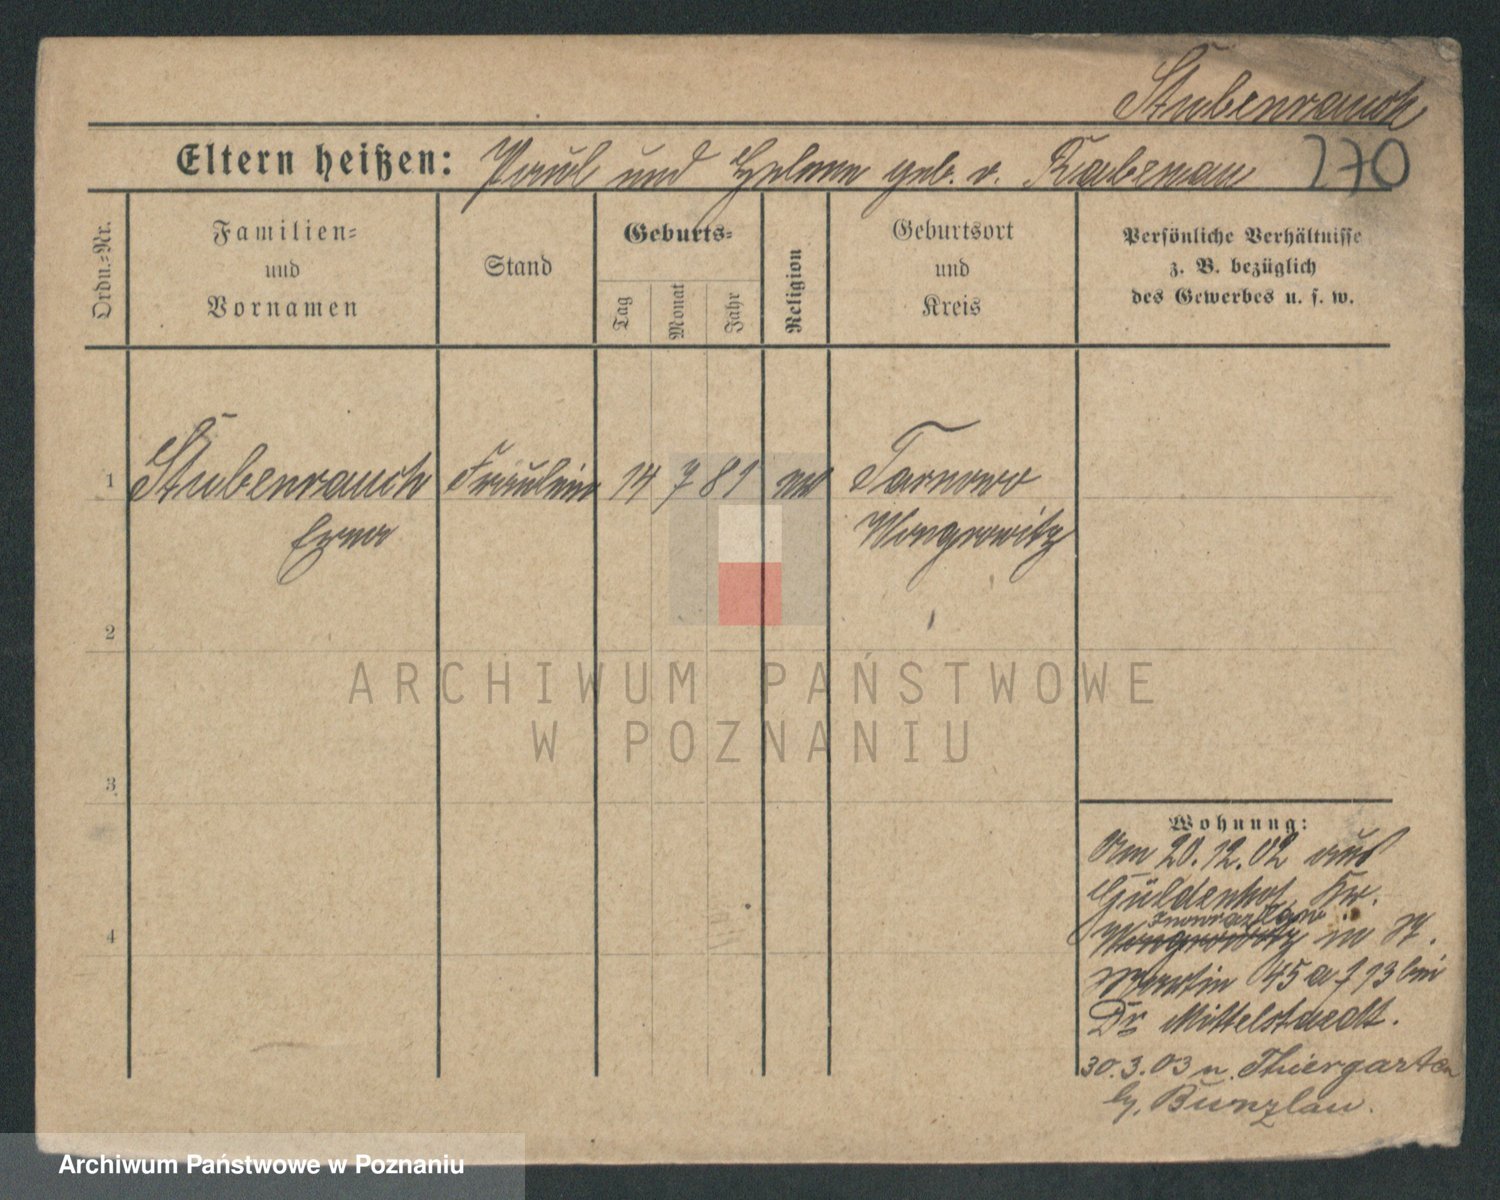 Stubenrauch
Eltern heißen: Paul und Helene geb. v. Rabenau 270
Ordn.-Nr.
Familien-
und
Vornamen
Stand
Geburts-
Tag
Monat
Jahr
Religion
Geburtsort
und
Kreis
Persönliche Verhältnisse
z. B. bezüglich
des Gewerbes u. s. w.
1 Stubenrauch Fräulein 14 7 81 Tarnowo
Erna Wongrowitz
2
3
4
Wohnung:
Am 20.12.02 aus
Güldenhof, Kr.
Inowrazlaw
Wongrowitz in St.
Martin 45 a bei
Dr. Mittelstaedt.
30.3.03 n. Thiergarten
b, Bunzlau.
ARCHIWUM PAŃSTWOWE
W POZNANIU
Archiwum Państwowe w Poznaniu